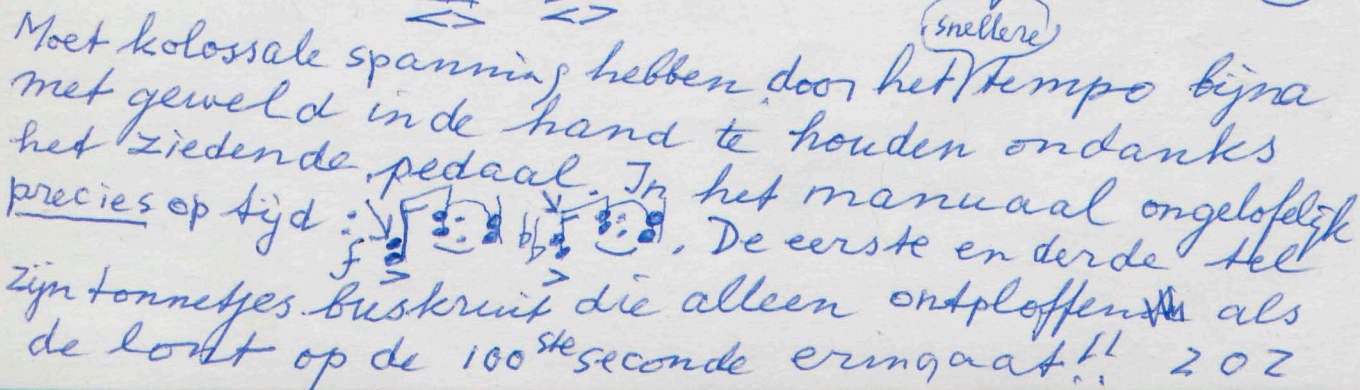 snellere
Moet kolossale spanning hebben door het tempo bijna
met geweld in de hand te houden ondanks
het ziedende pedaal. In het manuaal ongelofelijk
precies op tijd : f . De eerste en derde tel
zijn tonnetjes buskruit die alleen ontploffen als
de lont op de 100ste seconde eringaat!! ZOZ